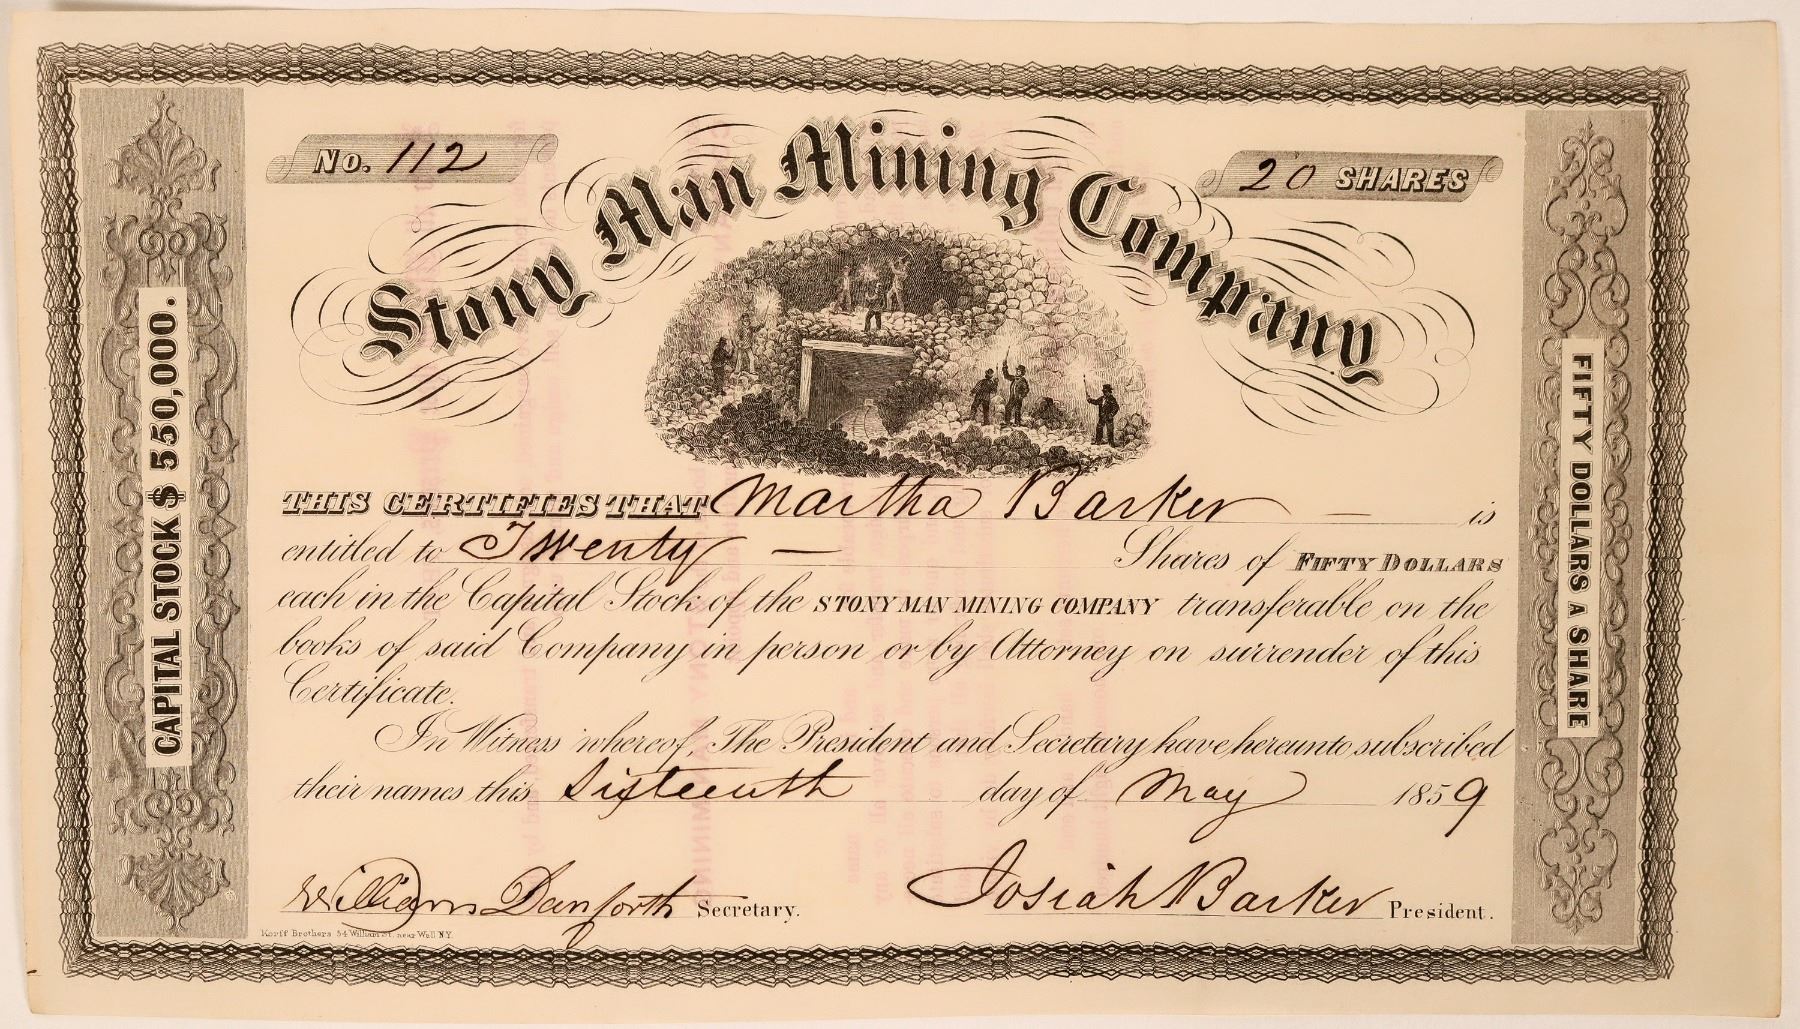 No. 112
20 SHARES
Stony Man Mining Company
CAPITAL STOCK $ 550,000.
FIFTY DOLLARS A SHARE
THIS CERTIFIES THAT Martha Barker — is
entitled to Twenty — Shares of FIFTY DOLLARS
each in the Capital Stock of the STONY MAN MINING COMPANY transferable on the
books of said Company in person or by Attorney on surrender of this
Certificate.
In Witness whereof, The President and Secretary have hereunto subscribed
their names this Sixteenth day of May 1859
William Danforth Secretary.
Josiah Barker President.
Korff Brothers 54 William St. near Wall N.Y.